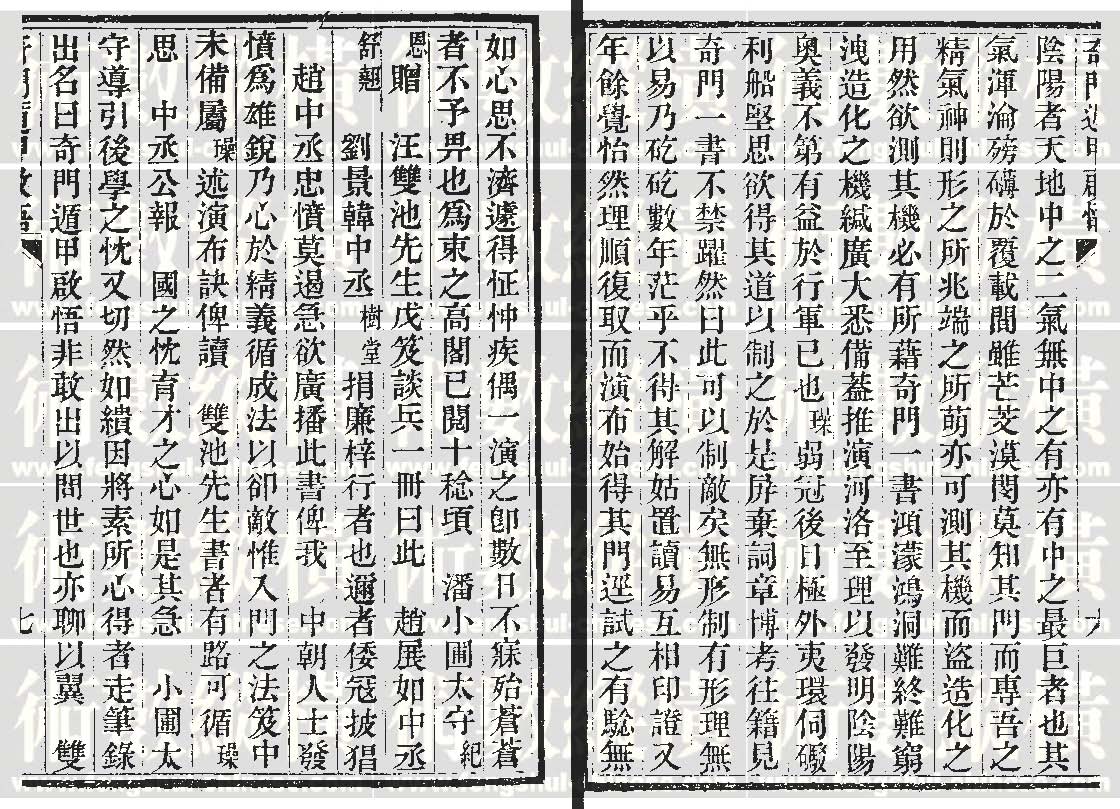 陰陽者天地中之二氣無中之有亦有中之最巨者也其
氣渾淪磅礴於覆載間雖芒芠漠閔莫知其門而專吾之
精氣神則形之所兆端之所萌亦可測其機而盜造化之
用然欲測其機必有所藉奇門一書鴻濛鴻洞難終難窮
洩造化之機緘廣大悉備葢推演河洛至理以發明陰陽
奥義不第有益於行軍已也璪弱冠後日極外夷環伺礮
利船堅思欲得其道以制之於是屏棄詞章博考往籍見
奇門一書不禁躍然曰此可以制敵矣無形制有形理無
以易乃矻矻數年茫乎不得其解姑置讀易互相印證又
年餘覺怡然理順復取而演布始得其門逕試之有驗無
如心思不濟遽得怔忡疾偶一演之卽數日不寐殆蒼蒼
者不予畀也爲束之高閣已閱十稔頃 潘小圃太守紀
恩贈 汪雙池先生戊笈談兵一冊曰此 趙展如中丞
舒翹 劉景韓中丞樹堂捐廉梓行者也邇者倭冦披猖
趙中丞忠憤莫遏急欲廣播此書俾我 中朝人士發
憤爲雄銳乃心於精義循成法以卻敵惟入門之法笈中
未備屬璪述演布訣俾讀 雙池先生書者有路可循璪
思 中丞公報 國之忱育才之心如是其急 小圃太
守導引後學之忱又切然如繢因將素所心得者走筆錄
出名曰奇門遁甲啟悟非敢出以問世也亦聊以翼 雙
七